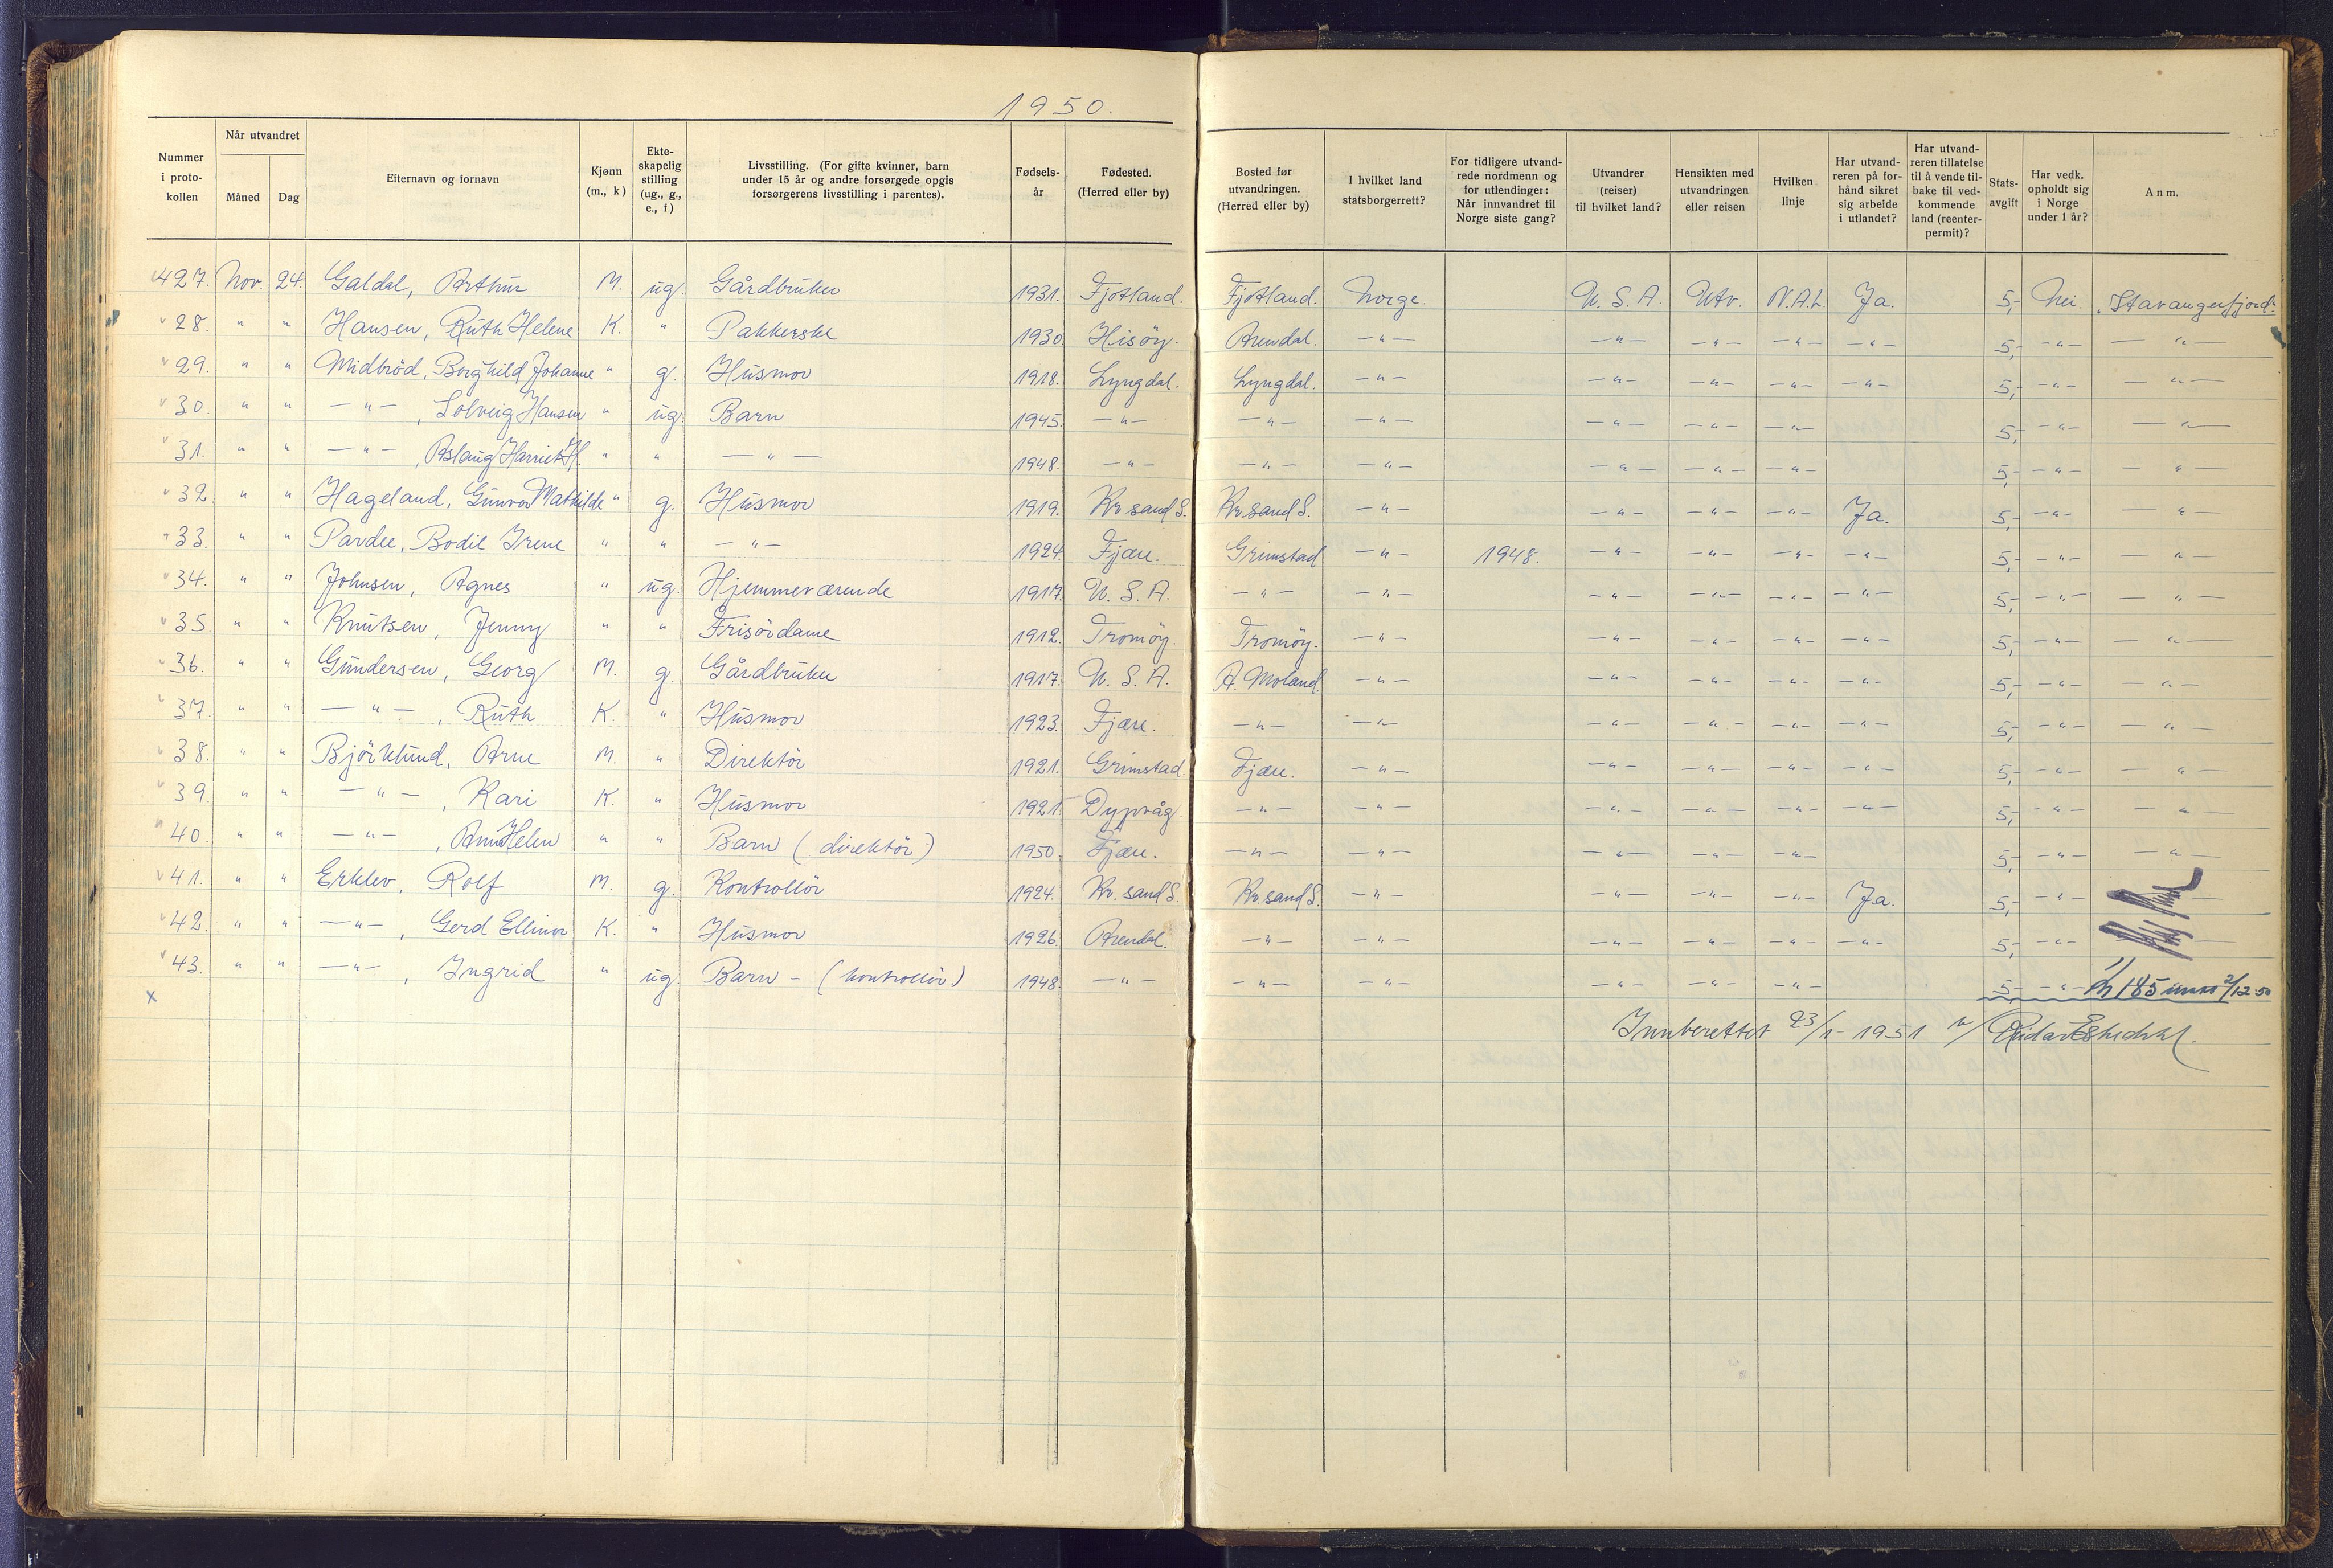 1950.
Nummer i proto-kollen | Når utvandret Måned Dag | Efternavn og fornavn | Kjønn (m., k) | Ekte-skapelig stilling (ug., g., e., f) | Livsstilling. (For gifte kvinner, barn under 15 år og andre forsørgede opgis forsørgerens livsstilling i parentes). | Fødsels-år | Fødested. (Herred eller by) | Bosted før utvandringen. (Herred eller by) | I hvilket land statsborgerrett? | For tidligere utvand-rede nordmenn og for utlendinger: Når innvandret til Norge siste gang? | Utvandrer (reiser) til hvilket land? | Hensikten med utvandringen eller reisen | Hvilken linje | Har utvand-reren på for-hånd sikret sig arbeide i utlandet? | Har utvand-reren tillatelse til å vende til-bake til ved-kommende land (reenter-permit)? | Stats-avgift | Har vedk. opholdt sig i Norge under 1 år? | Anm.
427. Nov. 24. Galdal, Arthur M. ug. Gårdbruker 1931. Fjotland. Fjotland. Norge. U.S.A. Utv. N.A.L. Ja. 5,- Nei. "Stavangerfjord".
28. " " Hansen, Ruth Helene K. " Pakkerske 1930. Hisöy. Arendal. -"- -"- -"- -"- -"- 5,- -"- -"-
29. " " Midbröd, Borghild Johanne " g. Husmor 1918. Lyngdal. Lyngdal. -"- -"- -"- -"- -"- 5,- -"- -"-
30. " " -"-, Solveig Hansen " ug. Barn 1945. -"- -"- -"- -"- -"- -"- 5,- -"- -"-
31. " " -"-, Aslaug Harriet H. " " -"- 1948. -"- -"- -"- -"- -"- -"- 5,- -"- -"-
32. " " Hageland, Gunvor Mathilde " g. Husmor 1919. Kr.sand S. Kr.sand S. -"- -"- -"- -"- Ja. 5,- -"- -"-
33. " " Pardee, Bodil Irene " " -"- 1924. Fjære. Grimstad -"- 1948. -"- -"- -"- -"- 5,- -"- -"-
34. " " Johnsen, Agnes " ug. Hjemmeværende 1917. U.S.A. -"- -"- -"- -"- -"- -"- 5,- -"- -"-
35. " " Knutsen, Jenny " " Frisördame 1912. Tromöy. Tromöy. -"- -"- -"- -"- -"- 5,- -"- -"-
36. " " Gundersen, Georg M. g. Gårdbruker 1917. U.S.A. A. Moland. -"- -"- -"- -"- -"- 5,- -"- -"-
37. " " -"-, Ruth K. " Husmor 1923. Fjære. -"- -"- -"- -"- -"- -"- 5,- -"- -"-
38. " " Björklund, Arne M. " Direktör 1921. Grimstad. Fjære. -"- -"- -"- -"- -"- 5,- -"- -"-
39. " " -"-, Kari K. " Husmor 1921. Dypvåg -"- -"- -"- -"- -"- -"- 5,- -"- -"-
40. " " -"-, Ann Helen " " Barn (direktör) 1950. Fjære. -"- -"- -"- -"- -"- 5,- -"- -"-
41. " " Erklev, Rolf M. g. Kontrollör 1924. Kr.sand S. Kr.sand S. -"- -"- -"- -"- Ja. 5,- -"-
42. " " -"-, Gerd Ellinor K. " Husmor 1926. Arendal. -"- -"- -"- -"- -"- -"- 5,- -"-
43. " " -"-, Ingrid " ug. Barn - (kontrollör) 1948. -"- -"- -"- -"- -"- -"- 5,- -"- 185 2/12-50
x
Innberettet 23/1-1951